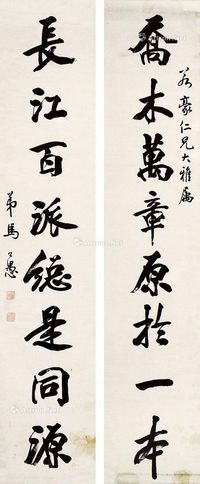 喬木萬章原於一本
若豪仁兄大雅屬
長江百派總是同源
弟馬公愚